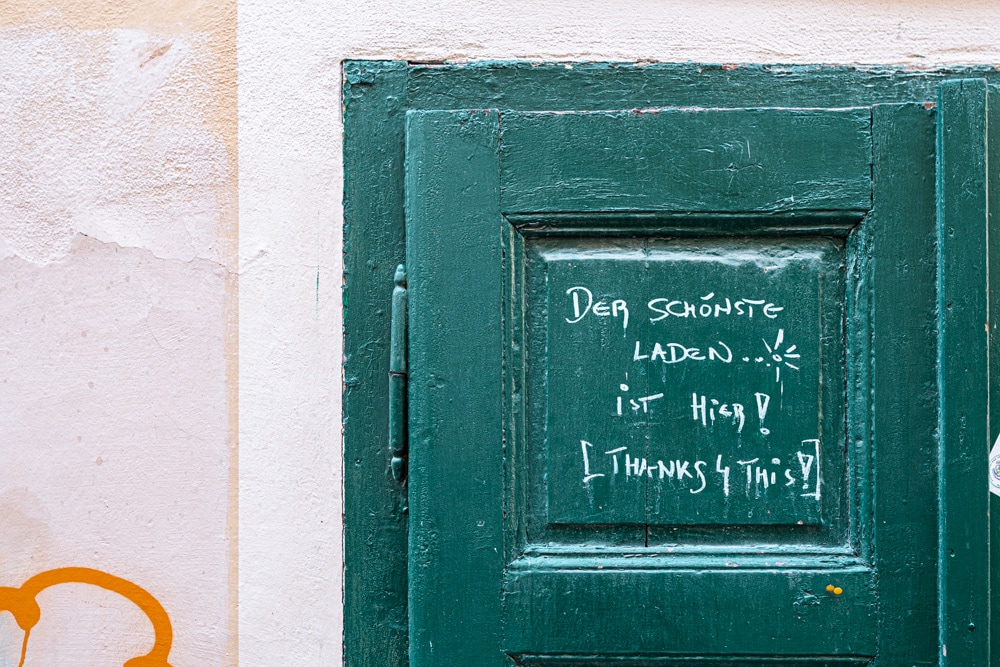 DER SCHÖNSTE
LADEN...
iST HiER!
[THANKS 4 THiS!]